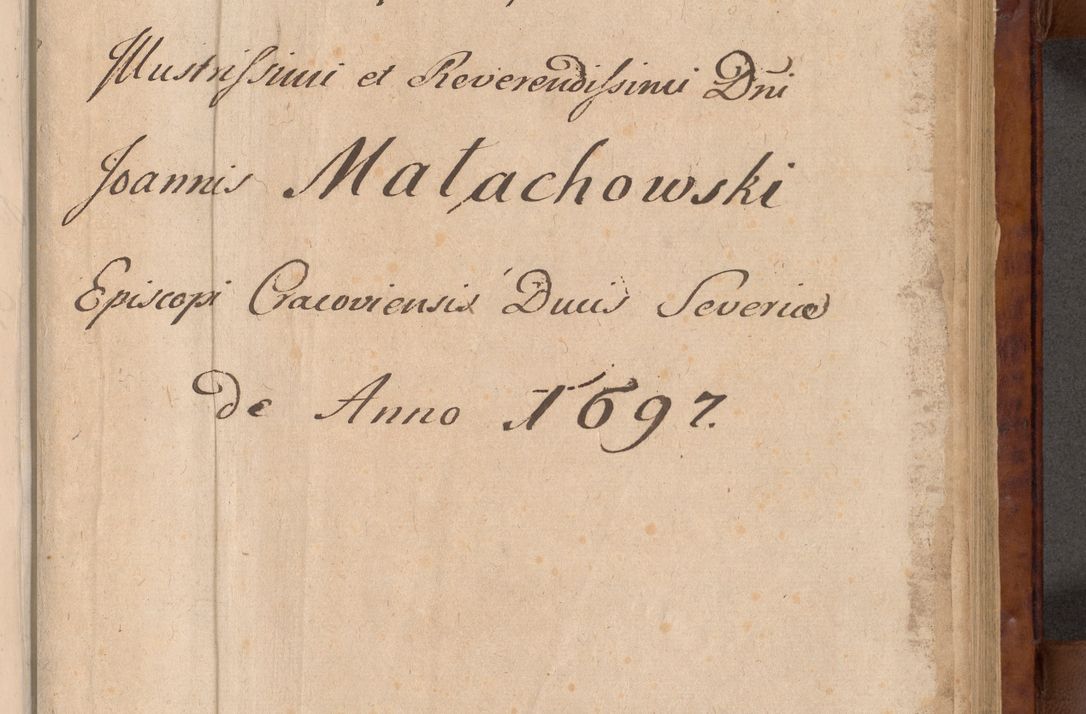 Illustrissimi et Reverendissimi Dni
Joannis Małachowski
Episcopi Cracoviensis Ducis Severiæ
de Anno 1697.